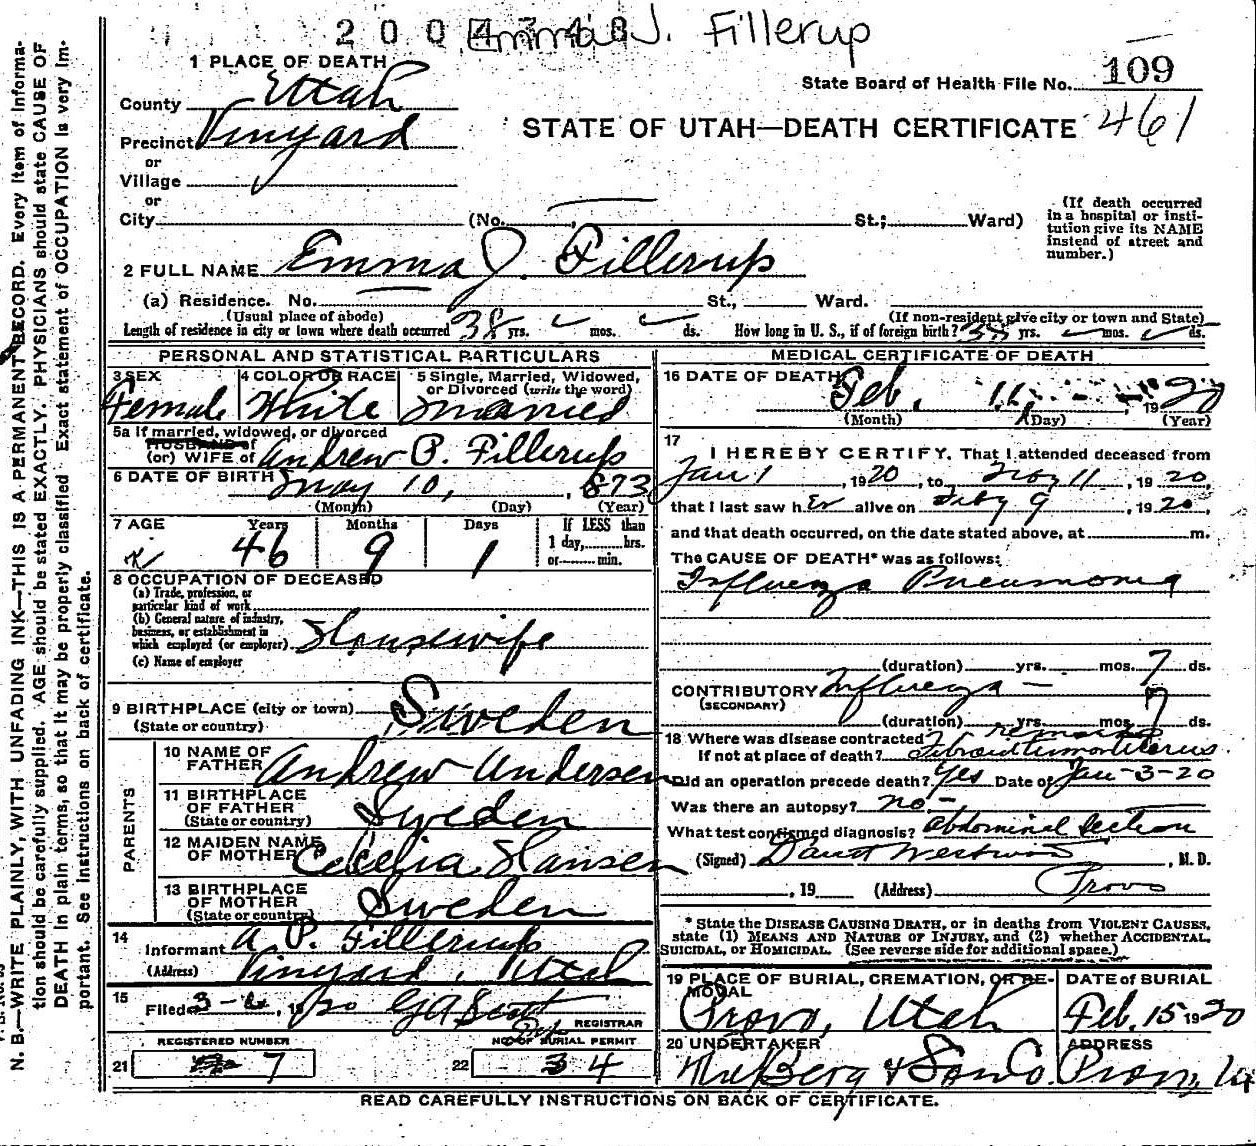 2004348
Emma J. Fillerup
State Board of Health File No. 109
461
1 PLACE OF DEATH
County Utah
STATE OF UTAH—DEATH CERTIFICATE
Precinct Vinyard
or
Village
or
City (No. St.; Ward)
(If death occurred
in a hospital or insti-
tution give its NAME
instead of street and
number.)
2 FULL NAME Emma J. Fillerup
(a) Residence. No. St., Ward.
(Usual place of abode) (If non-resident give city or town and State)
Length of residence in city or town where death occurred 38 yrs. mos. ds. How long in U. S., if of foreign birth? 38 yrs. mos. ds.
PERSONAL AND STATISTICAL PARTICULARS
3 SEX
Female
4 COLOR OR RACE
White
5 Single, Married, Widowed,
or Divorced (write the word)
Married
5a If married, widowed, or divorced
HUSBAND of
(or) WIFE of Andrew P. Fillerup
6 DATE OF BIRTH May 10, 1873
(Month) (Day) (Year)
7 AGE Years Months Days
46 9 1
If LESS than
1 day, hrs.
or min.
8 OCCUPATION OF DECEASED
(a) Trade, profession, or
particular kind of work
(b) General nature of industry,
business, or establishment in
which employed (or employer) Housewife
(c) Name of employer
9 BIRTHPLACE (city or town) Sweden
(State or country)
PARENTS
10 NAME OF
FATHER Andrew Andersen
11 BIRTHPLACE
OF FATHER
(State or country) Sweden
12 MAIDEN NAME
OF MOTHER Cecelia Hansen
13 BIRTHPLACE
OF MOTHER
(State or country) Sweden
14
Informant A. P. Fillerup
(Address) Vinyard, Utah
15
Filed 3- , 1920 G A Scott
Dep REGISTRAR
REGISTERED NUMBER
21 7
NO. OF BURIAL PERMIT
22 3 4
MEDICAL CERTIFICATE OF DEATH
16 DATE OF DEATH Feb. 11 , 1920
(Month) (Day) (Year)
17
I HEREBY CERTIFY, That I attended deceased from
Jan 1, 1920, to Feby 11, 1920,
that I last saw her alive on Feby 9, 1920,
and that death occurred, on the date stated above, at m.
The CAUSE OF DEATH* was as follows:
Influenza Pneumonia
(duration) yrs. mos. 7 ds.
CONTRIBUTORY Influenza -
(SECONDARY)
(duration) yrs. mos. 7 ds.
18 Where was disease contracted
If not at place of death? Fibroid tumor Uterus
Did an operation precede death? Yes Date of Jan-3-20
Was there an autopsy? no-
What test confirmed diagnosis? Abdominal section
(Signed) David Westwood, M. D.
, 19 (Address) Provo
* State the DISEASE CAUSING DEATH, or in deaths from VIOLENT CAUSES,
state (1) MEANS AND NATURE OF INJURY, and (2) whether ACCIDENTAL,
SUICIDAL, OR HOMICIDAL. (See reverse side for additional space.)
19 PLACE OF BURIAL, CREMATION, OR RE-
MOVAL
Provo, Utah
DATE of BURIAL
Feb. 15 1920
20 UNDERTAKER
Berg & Son Co.
ADDRESS
Provo, Ut
READ CAREFULLY INSTRUCTIONS ON BACK OF CERTIFICATE.
N. B.—WRITE PLAINLY, WITH UNFADING INK—THIS IS A PERMANENT RECORD. Every item of informa-
tion should be carefully supplied. AGE should be stated EXACTLY. PHYSICIANS should state CAUSE OF
DEATH in plain terms, so that it may be properly classified. Exact statement of OCCUPATION is very im-
portant. See instructions on back of certificate.